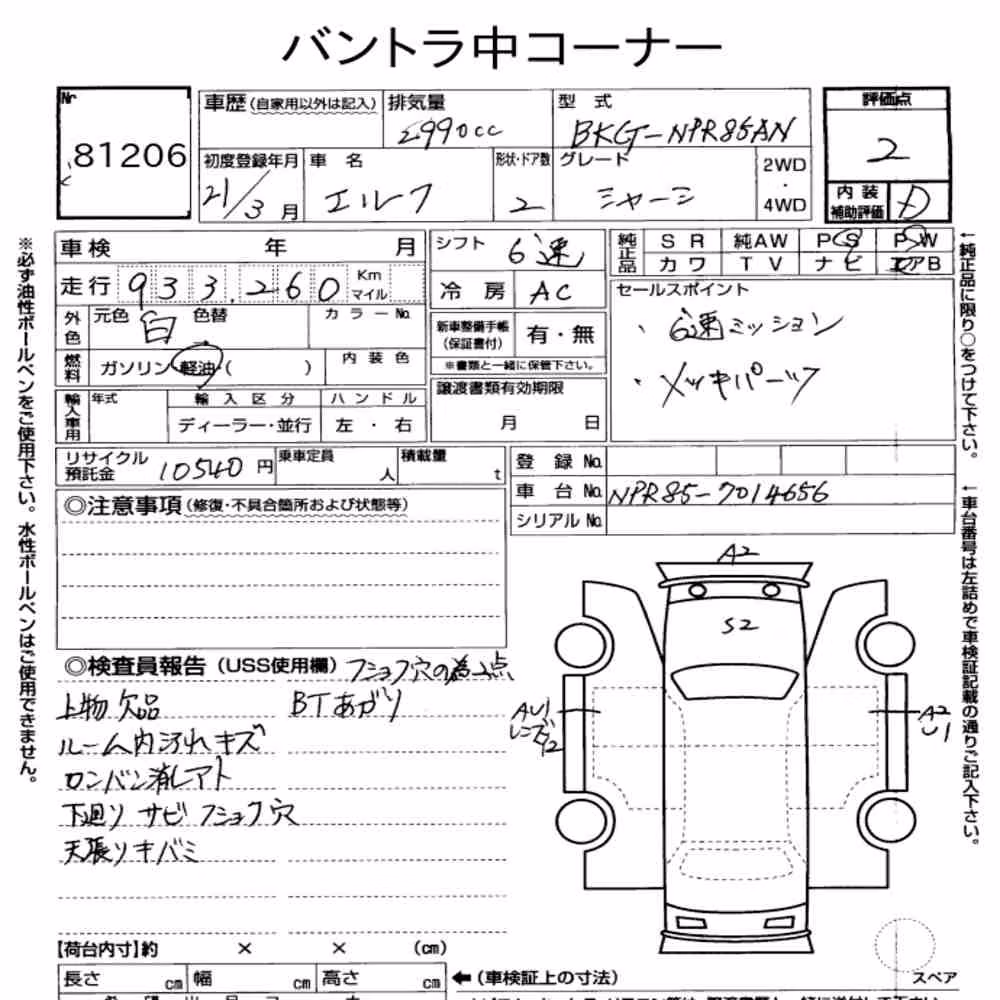 バントラ中コーナー
Nr 81206
車歴(自家用以外は記入) 排気量 2990cc 型式 BKG-NPR85AN
評価点 2
初度登録年月 21/3月 車名 エルフ 形状・ドア数 2 グレード シャーシ 2WD・4WD
内装補助評価 D
車検 年 月
シフト 6速
純正品 SR 純AW PS PW
カワ TV ナビ エアB
走行 933,260 Km マイル
冷房 AC
セールスポイント
・6速ミッション
・メッキパーツ
外色 元色 白 色替 カラーNo.
新車整備手帳(保証書付) 有・無
※書類と一緒に保管下さい。
燃料 ガソリン 軽油 ( ) 内装色
譲渡書類有効期限 月 日
輸入車用 年式 輸入区分 ハンドル
ディーラー・並行 左・右
リサイクル預託金 10540円 乗車定員 人 積載量 t
登録No.
車台No. NPR85-7014656
シリアルNo.
◎注意事項(修復・不具合箇所および状態等)
◎検査員報告(USS使用欄) フショク穴の為2点
上物欠品 BTあがり
ルーム内汚れキズ
ロンバン消しアト
下廻りサビフショク穴
天張りキバミ
A2
S2
AU1
A2
U1
【荷台内寸】約 × × (cm)
長さ cm 幅 cm 高さ cm ←(車検証上の寸法)
スペア
※必ず油性ボールペンをご使用下さい。水性ボールペンはご使用できません。
←純正品に限り○をつけて下さい。
←車台番号は左詰めで車検証記載の通りご記入下さい。